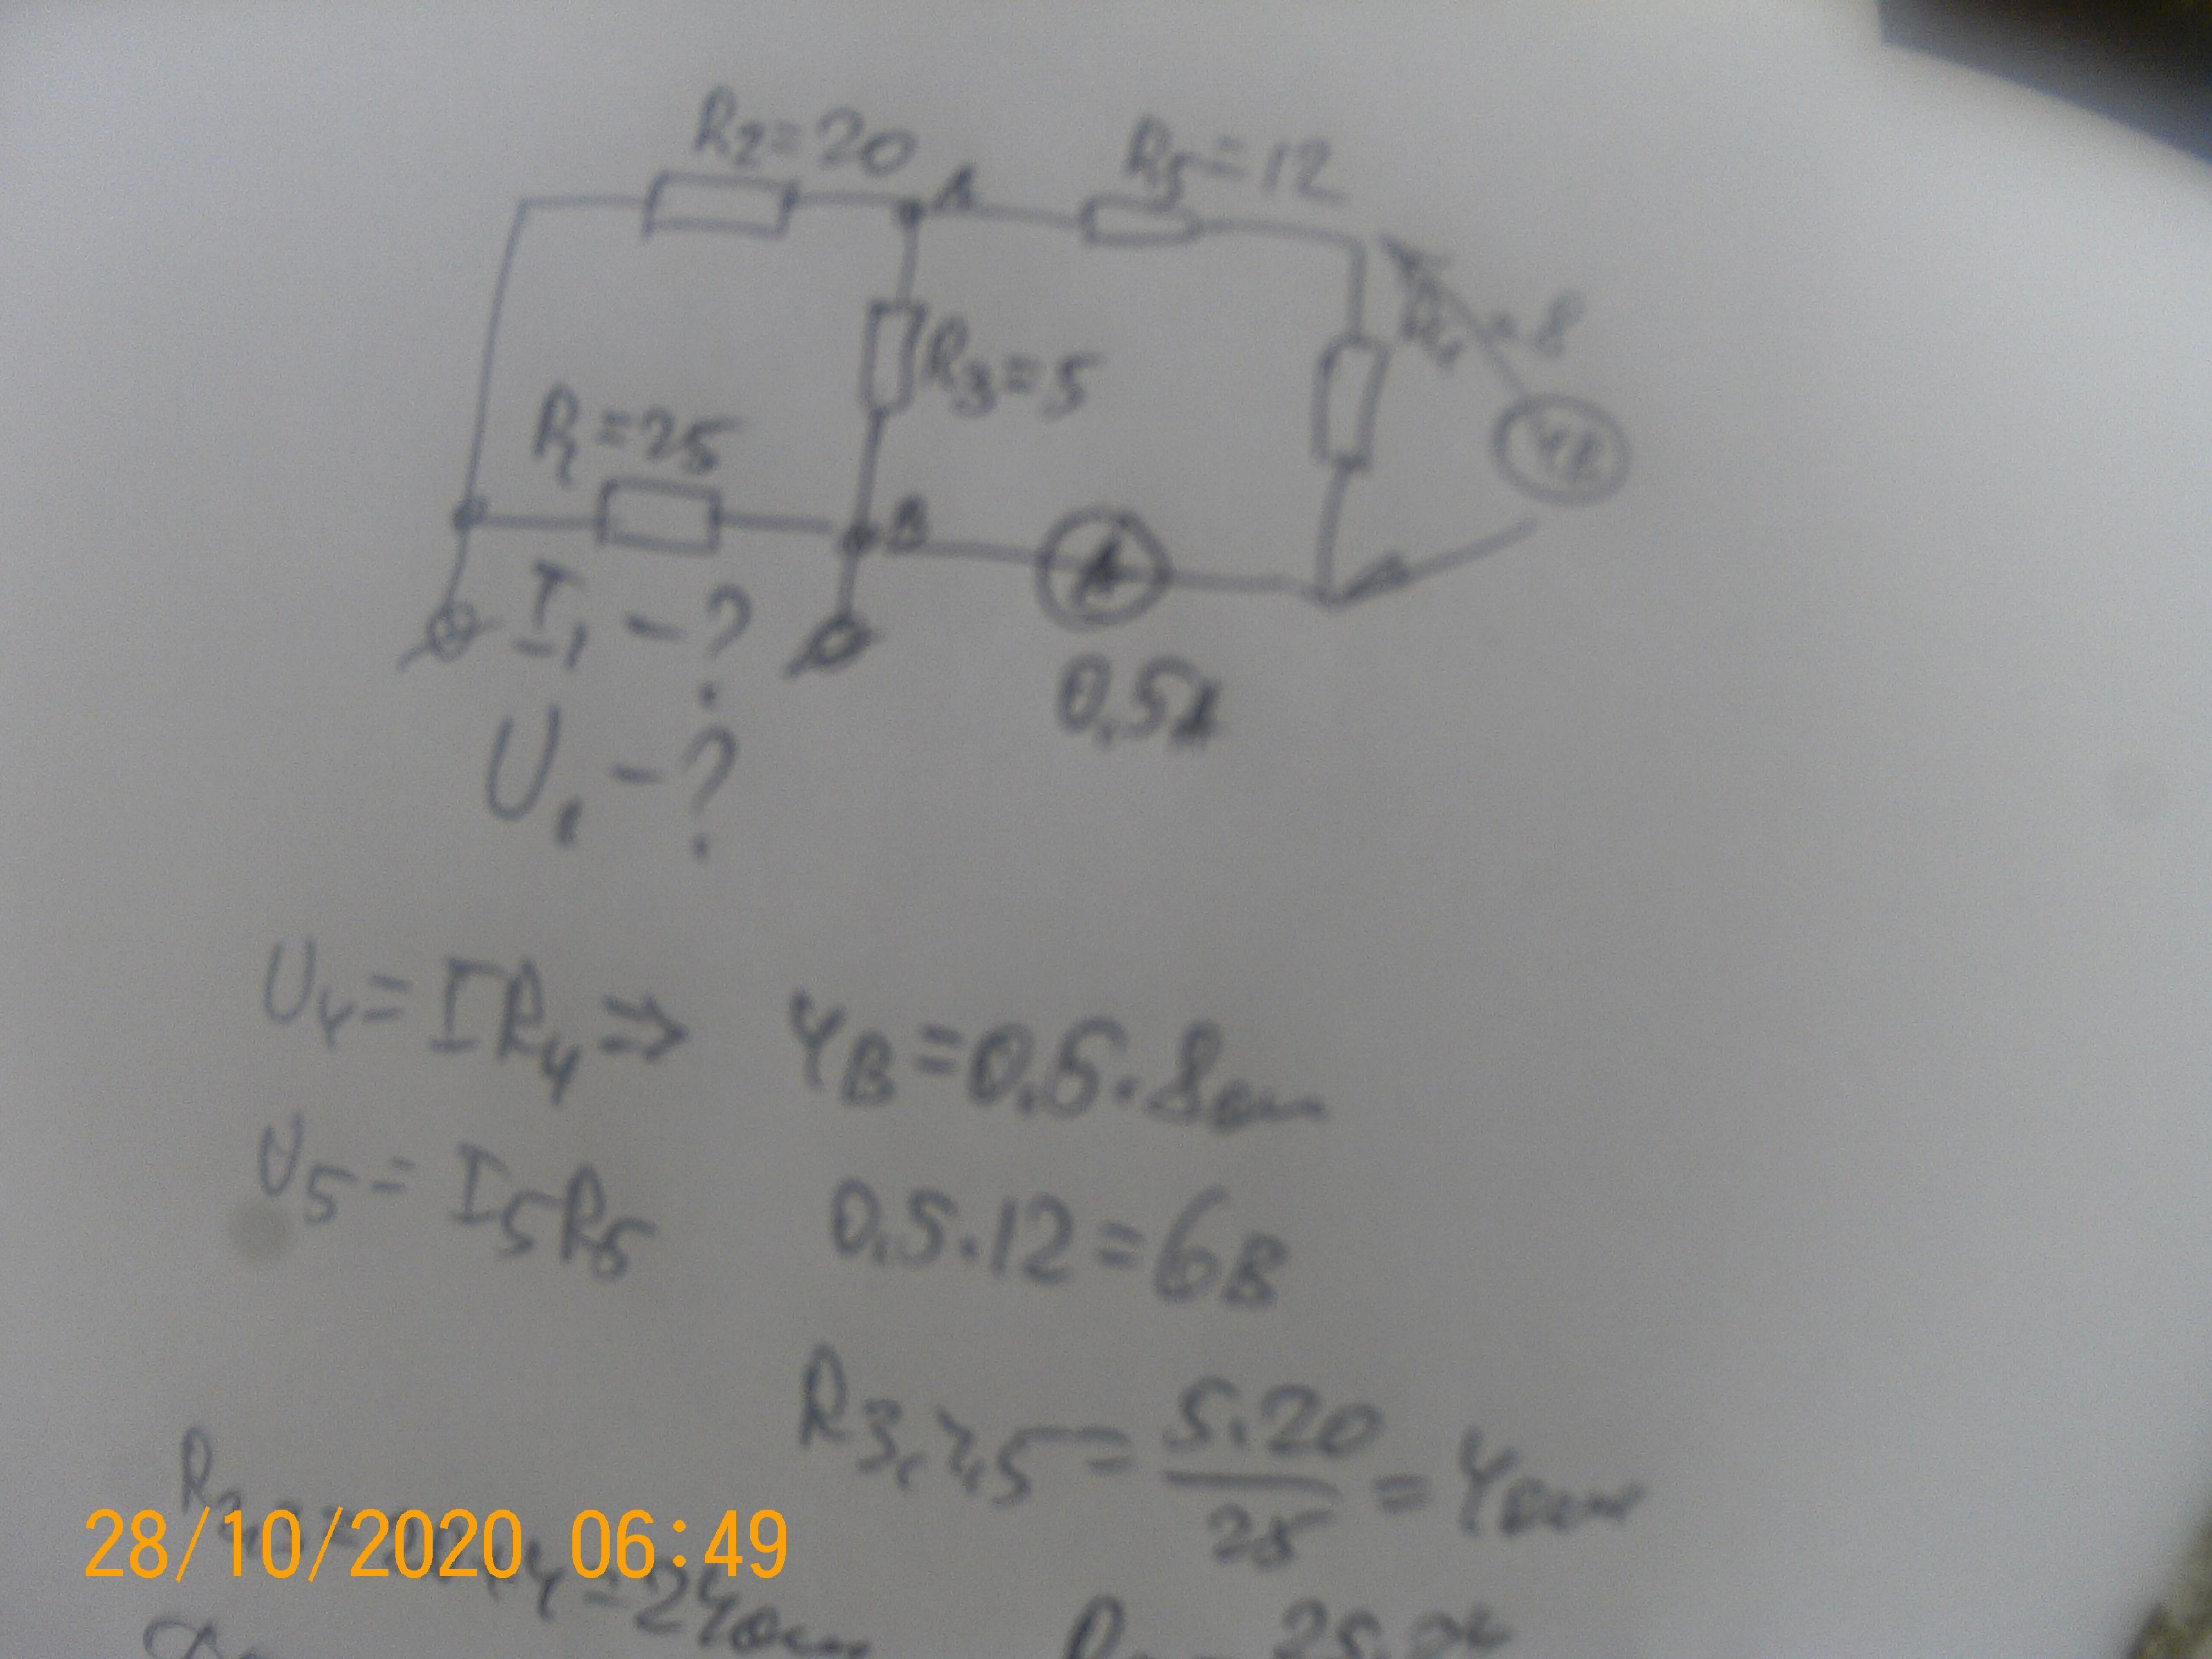 R2=20
A
R5=12
R4=8
R3=5
4В
R1=25
B
A
I1-?
0,5A
U1-?
U4=IR4⇒ 4В=0.5·8ом
U5=I5R5 0.5·12=6В
R3,4,5=5·20/25=4ом
4=24ом
28/10/2020 06:49